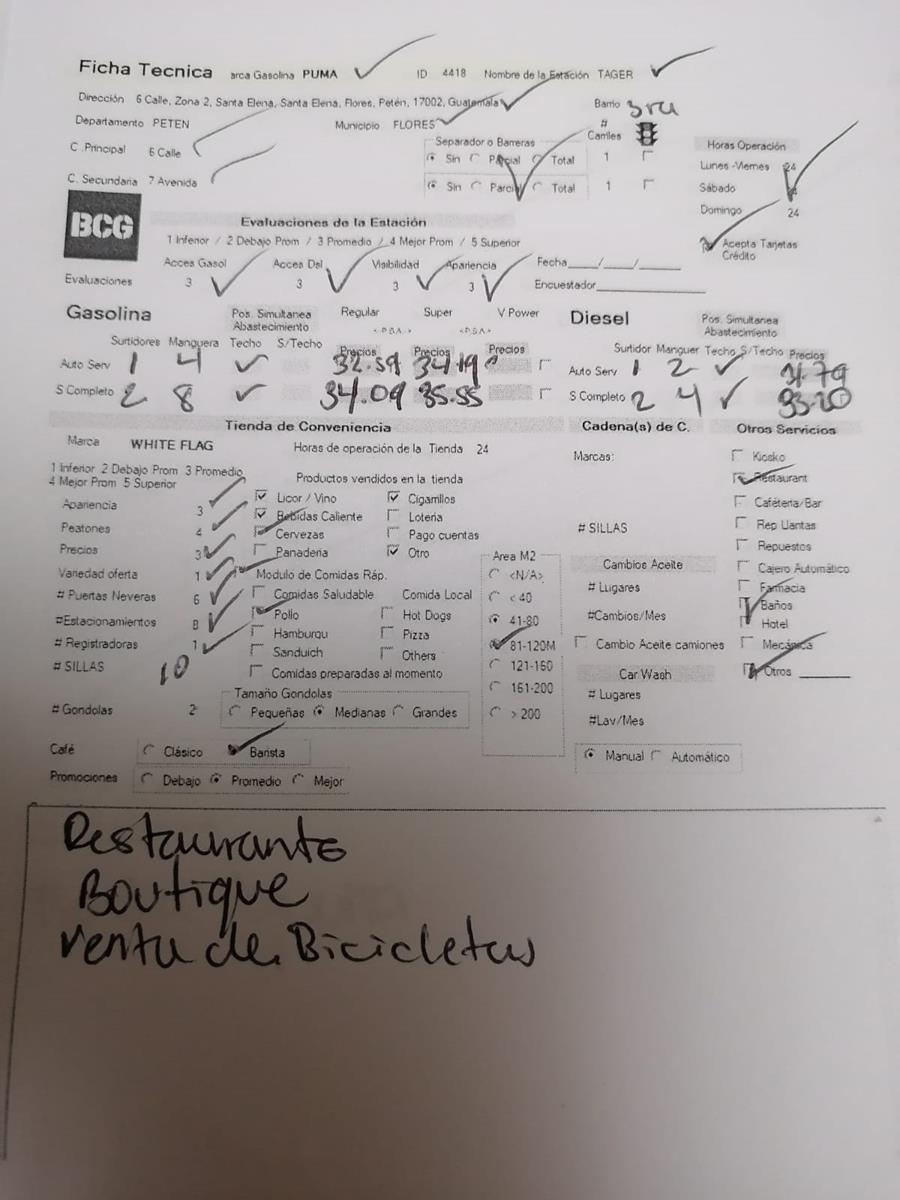 Ficha Tecnica arca Gasolina PUMA ID 4418 Nombre de la Estación TAGER
Dirección 6 Calle, Zona 2, Santa Elena, Santa Elena, Flores, Petén, 17002, Guatemala Barrio 3ra
Departamento PETEN Municipio FLORES # Carriles
C .Principal 6 Calle Separador o Barreras Horas Operación
Sin Parcial Total 1 Lunes -Viernes 24
C. Secundaria 7 Avenida Sin Parcial Total 1 Sábado
Domingo 24
BCG
Evaluaciones de la Estación
1 Inferior / 2 Debajo Prom / 3 Promedio / 4 Mejor Prom / 5 Superior Acepta Tarjetas Crédito
Acces Gasol Acces Dsl Visibilidad Apariencia Fecha___/___/___
Evaluaciones 3 3 3 3 Encuestador
Gasolina Pos. Simultanea Abastecimiento Regular Super V Power Diesel Pos. Simultanea Abastecimiento
Surtidores Manguera Techo S/Techo Precios Precios Precios Surtidor Manguer Techo S/Techo Precios
Auto Serv 1 4 32.59 34.19 Auto Serv 1 2 31.79
S Completo 2 8 34.09 35.55 S Completo 2 4 33.20
Tienda de Conveniencia Cadena(s) de C. Otros Servicios
Marca WHITE FLAG Horas de operación de la Tienda 24 Marcas: Kiosko
1 Inferior 2 Debajo Prom 3 Promedio
4 Mejor Prom 5 Superior Productos vendidos en la tienda Restaurant
Apariencia 3 Licor / Vino Cigarrillos Cafétería/Bar
Peatones 4 Bebidas Caliente Loteria # SILLAS Rep Llantas
Precios 3 Cervezas Pago cuentas Repuestos
Panaderia Otro Area M2 Cambios Aceite Cajero Automático
Variedad oferta 1 Modulo de Comidas Ráp. <N/A> # Lugares Farmacia
# Puertas Neveras 6 Comidas Saludable Comida Local < 40 Baños
#Estacionamientos 8 Pollo Hot Dogs 41-80 #Cambios/Mes Hotel
# Registradoras 1 Hamburqu Pizza 81-120M Cambio Aceite camiones Mecánica
# SILLAS 10 Sanduich Others 121-160 Car Wash Otros
Comidas preparadas al momento 161-200 # Lugares
Tamaño Gondolas
# Gondolas 2 Pequeñas Medianas Grandes > 200 #Lav/Mes
Café Clásico Barista Manual Automático
Promociones Debajo Promedio Mejor
Restaurante
Boutique
Venta de Bicicletas